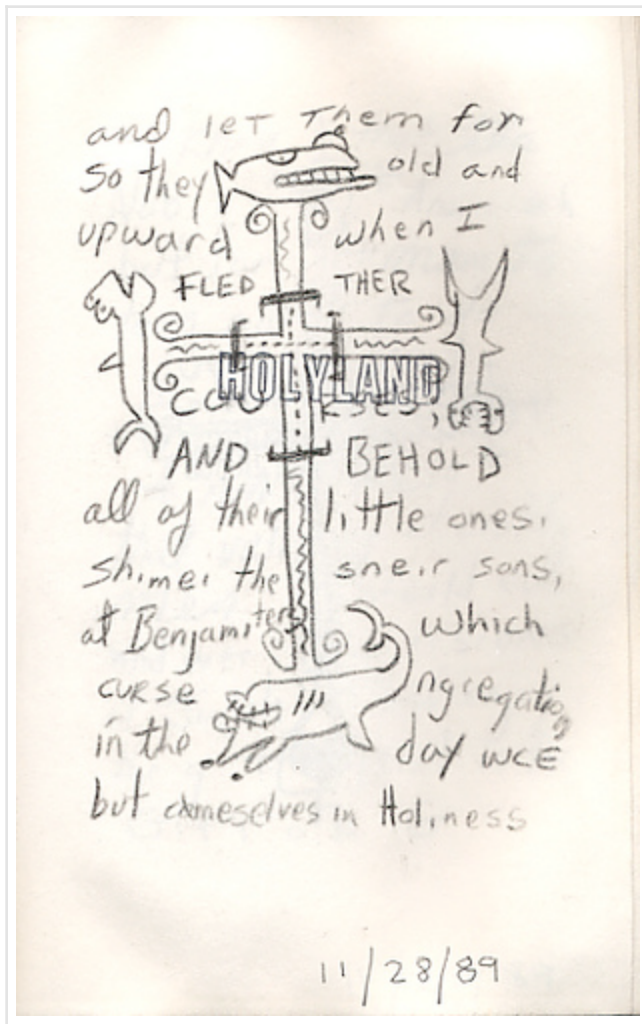 and let Them for
so they old and
upward when I
FLED THER
HOLYLAND
AND BEHOLD
all of their little ones.
shimei the sneir sons,
at Benjamiters which
curse ngregation
in the day wce
but domeselves in Holiness
11/28/89